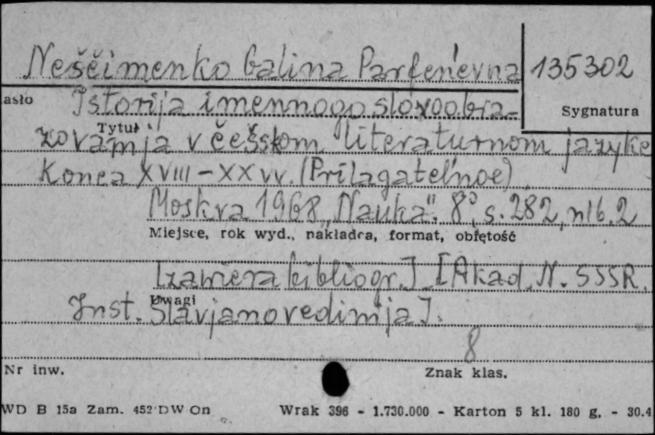 Neščimenko Galina Parfen'evna
135302
asło
Istorija imennogo slovoobra-
Sygnatura
Tytuł
zovanija v češskom literaturnom jazyke
Konca XVIII-XX vv. (Prilagatel'noe)
Moskva 1968 „Nauka". 8°, s. 282, nlb. 2
Miejsce, rok wyd., nakładca, format, objętość
[zawiera bibliogr.] [Akad. N. SSSR.
Uwagi
Inst. Slavjanovedinija].
8
Nr inw.
Znak klas.
WD B 15a Zam. 452 DW On
Wrak 396 - 1.730.000 - Karton 5 kl. 180 g. - 30.4